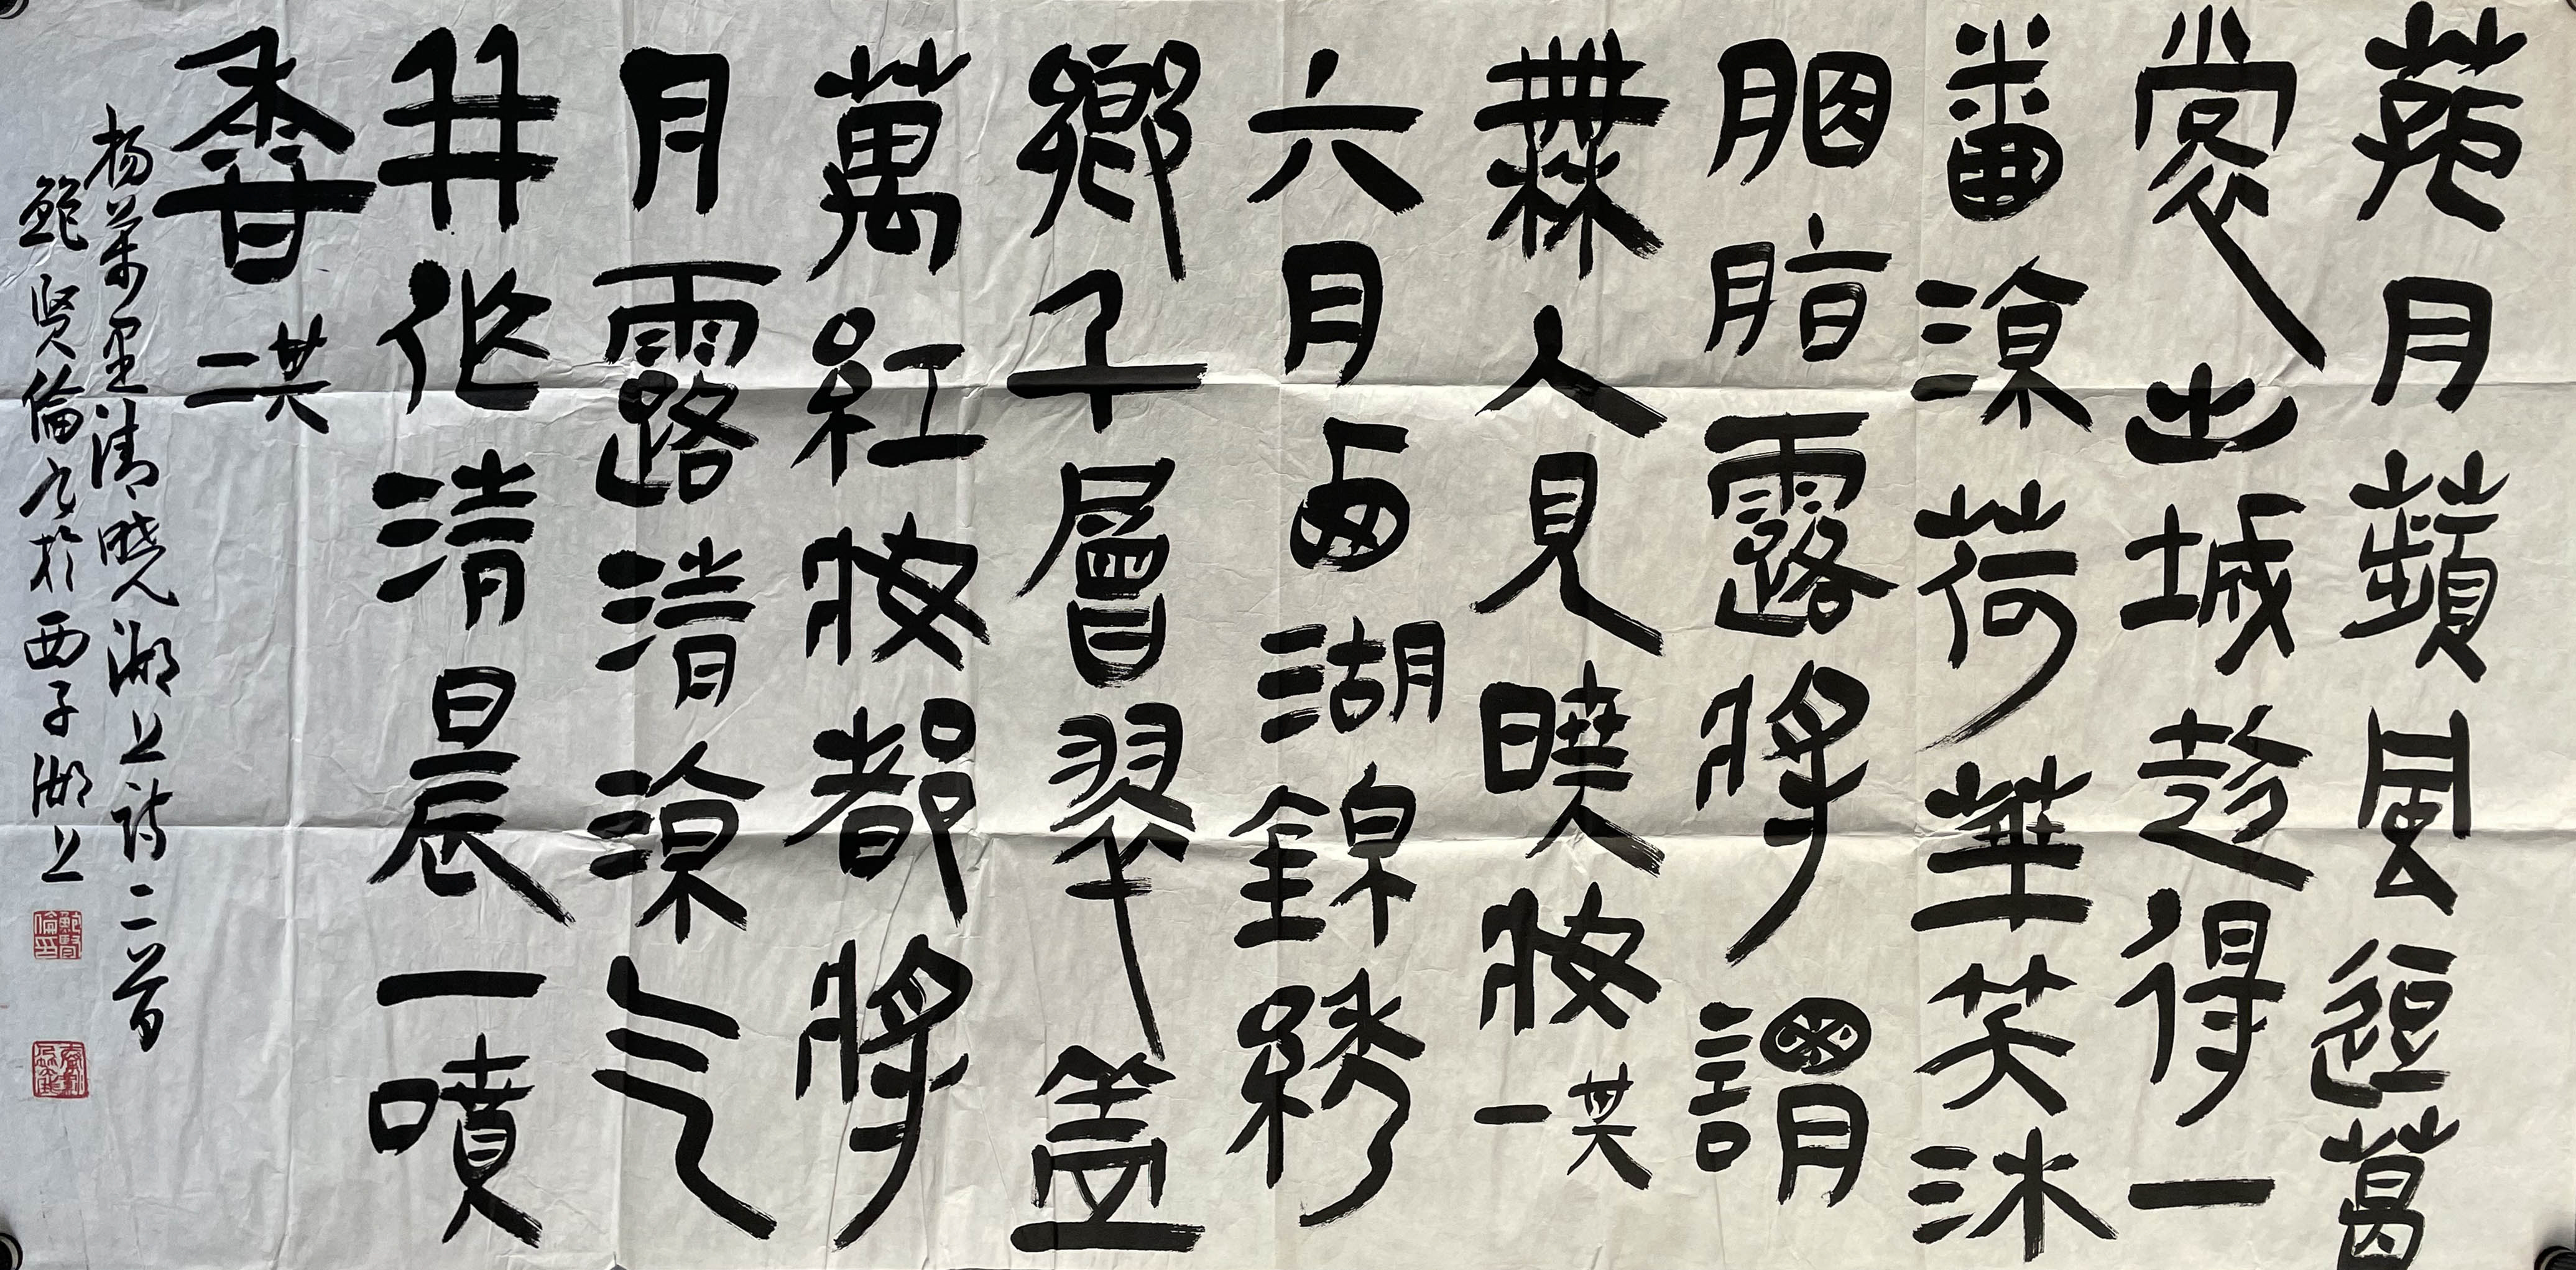 菰月蘋風逗葛
裳出城趁得一
番涼荷華笑沐
胭脂露將謂
無人見曉妝 其一
六月西湖錦繡
鄉千層翠蓋
萬紅妝都將
月露清涼气
并作清晨一噴
香 其二
杨萬里清曉湖上詩二首
鲍贤倫於西子湖上
鮑賢倫印